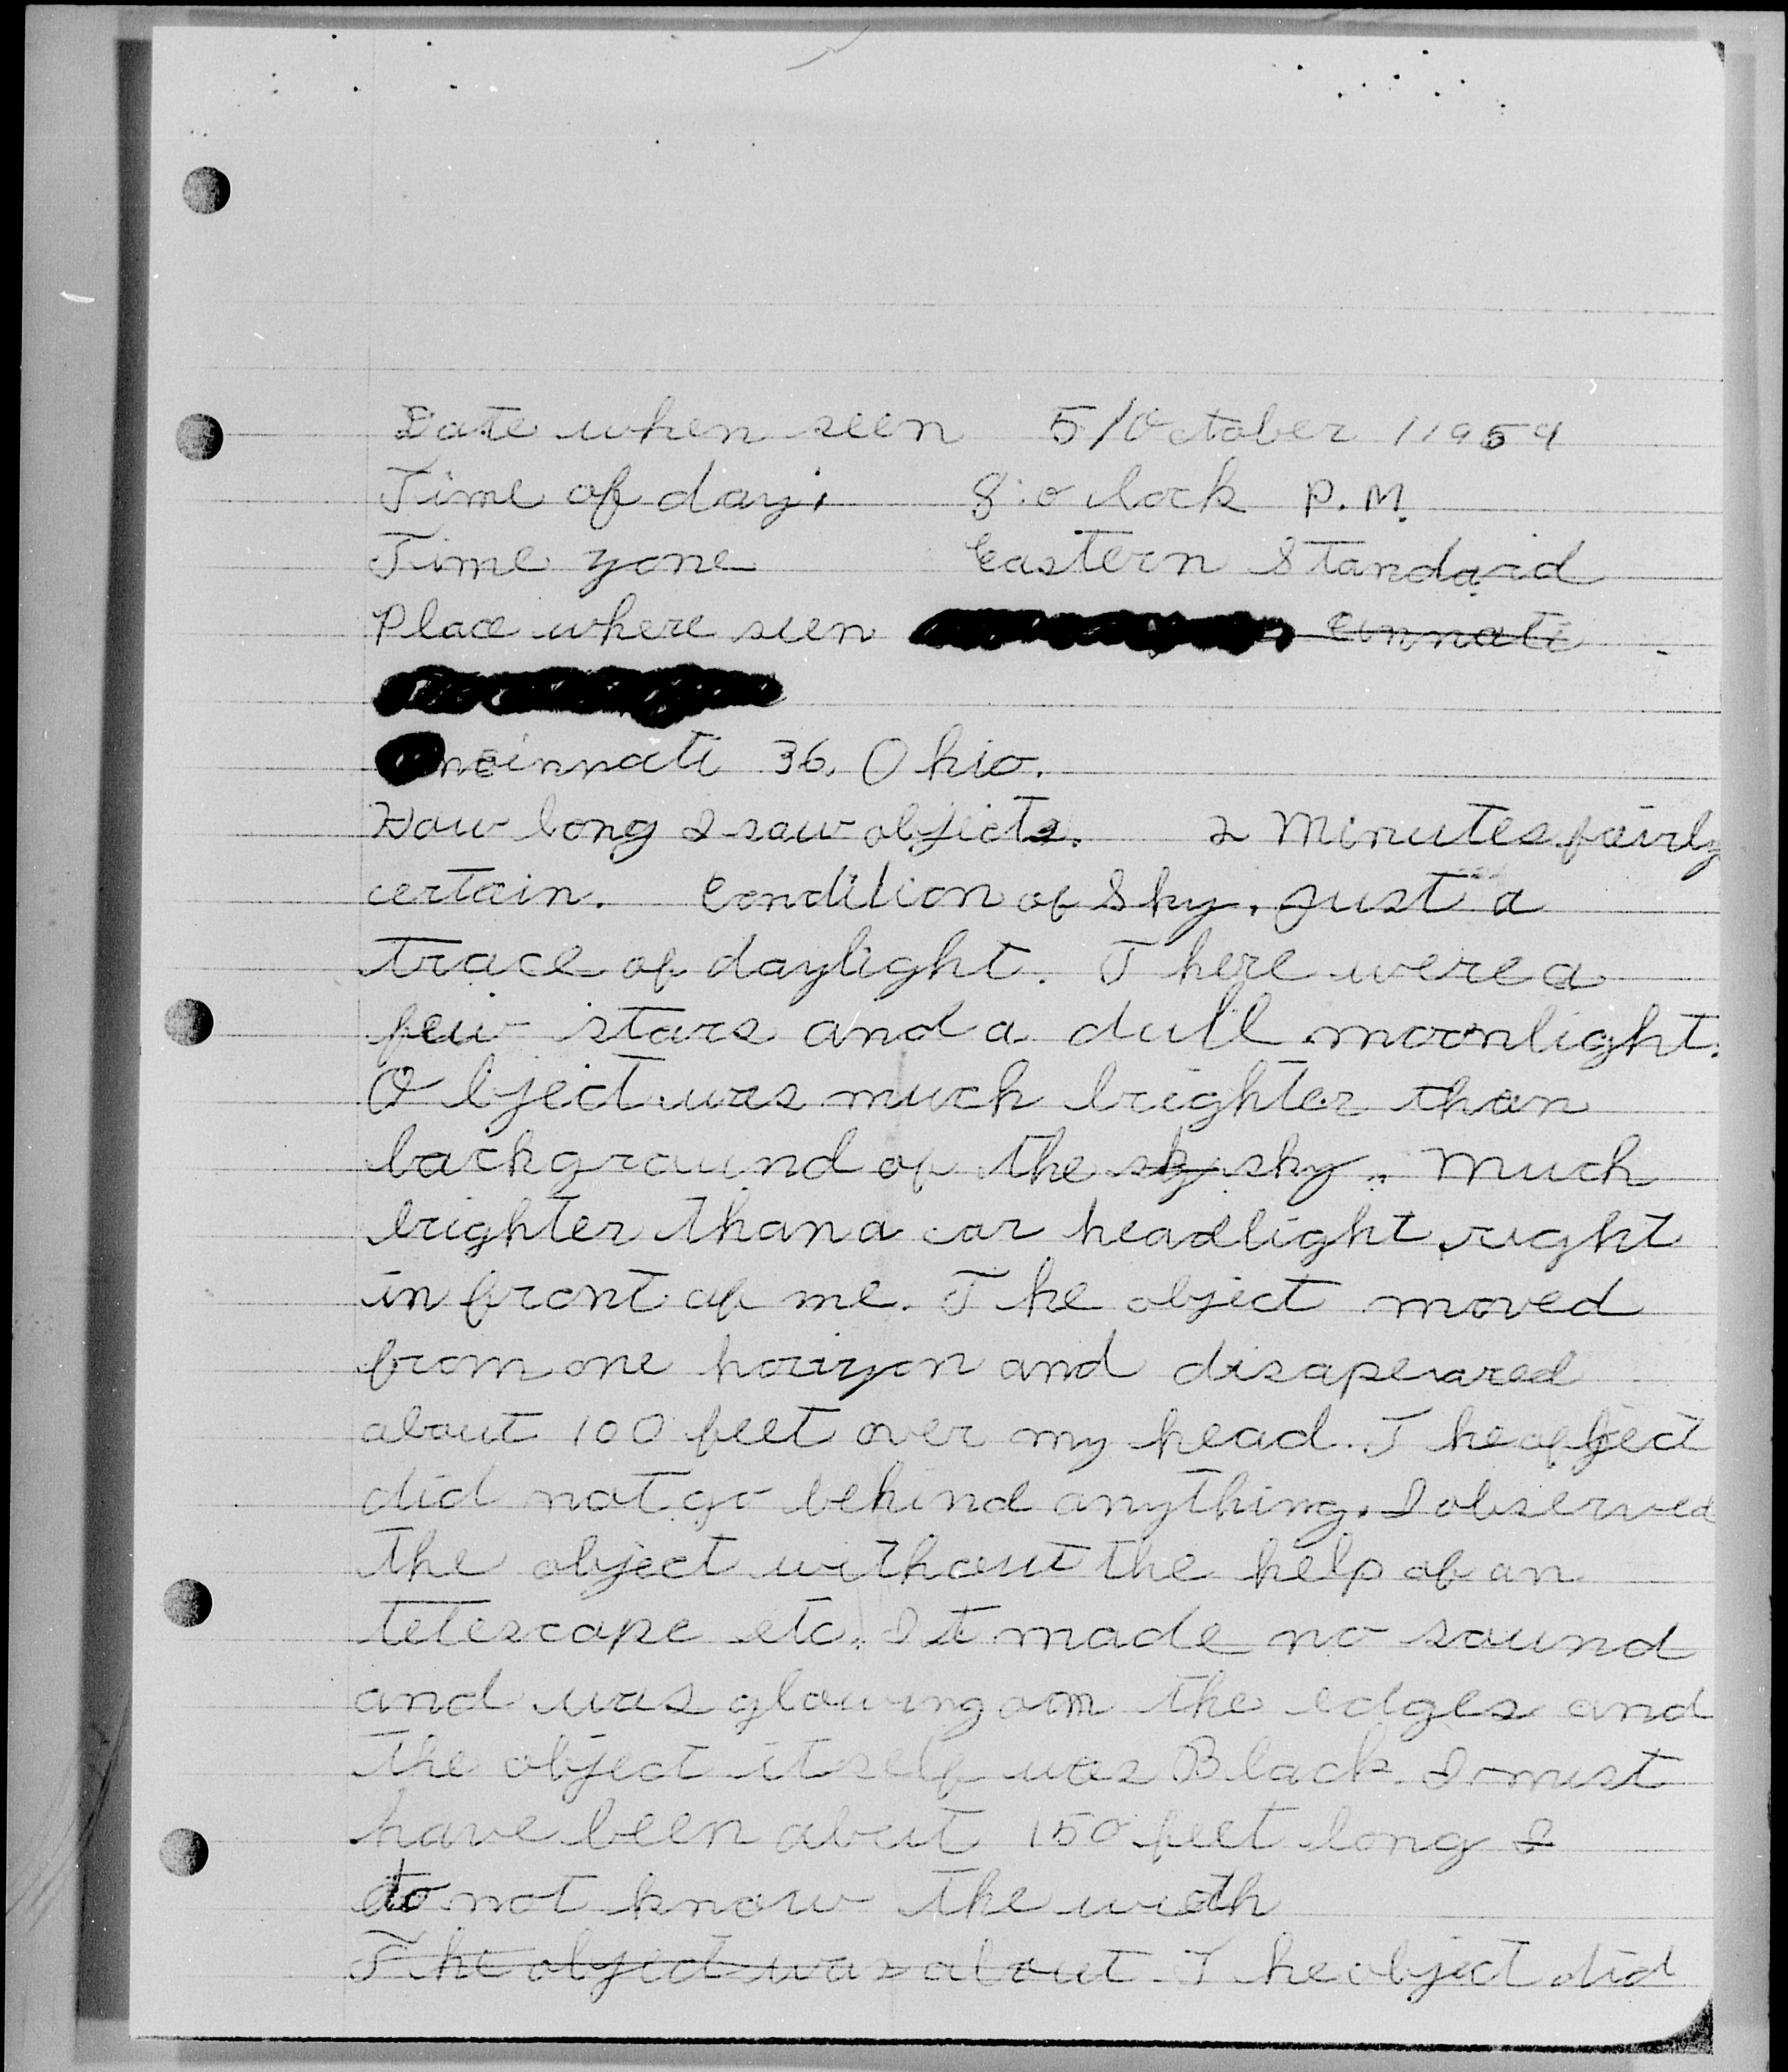 Date when seen 5/October /1959
Time of day; 8:o lock P.M.
Time zone Eastern Standard
Place where seen Cinnati
ncinnati 36, Ohio.
How long I saw objects. 2 Minutes fairly
certain. Condition of Sky. Just a
trace of daylight. There were a
few stars and a dull moonlight.
Object was much brighter than
background of the sky sky. Much
brighter than a car headlight right
in front of me. The object moved
from one horizon and disapeared
about 100 feet over my head. The object
did not go behind anything. I observed
the object without the help of an
telescope etc. It made no sound
and was glowing on the edges and
the object itself was Black. I must
have been about 150 feet long I
do not know the width
The object was about. The object did